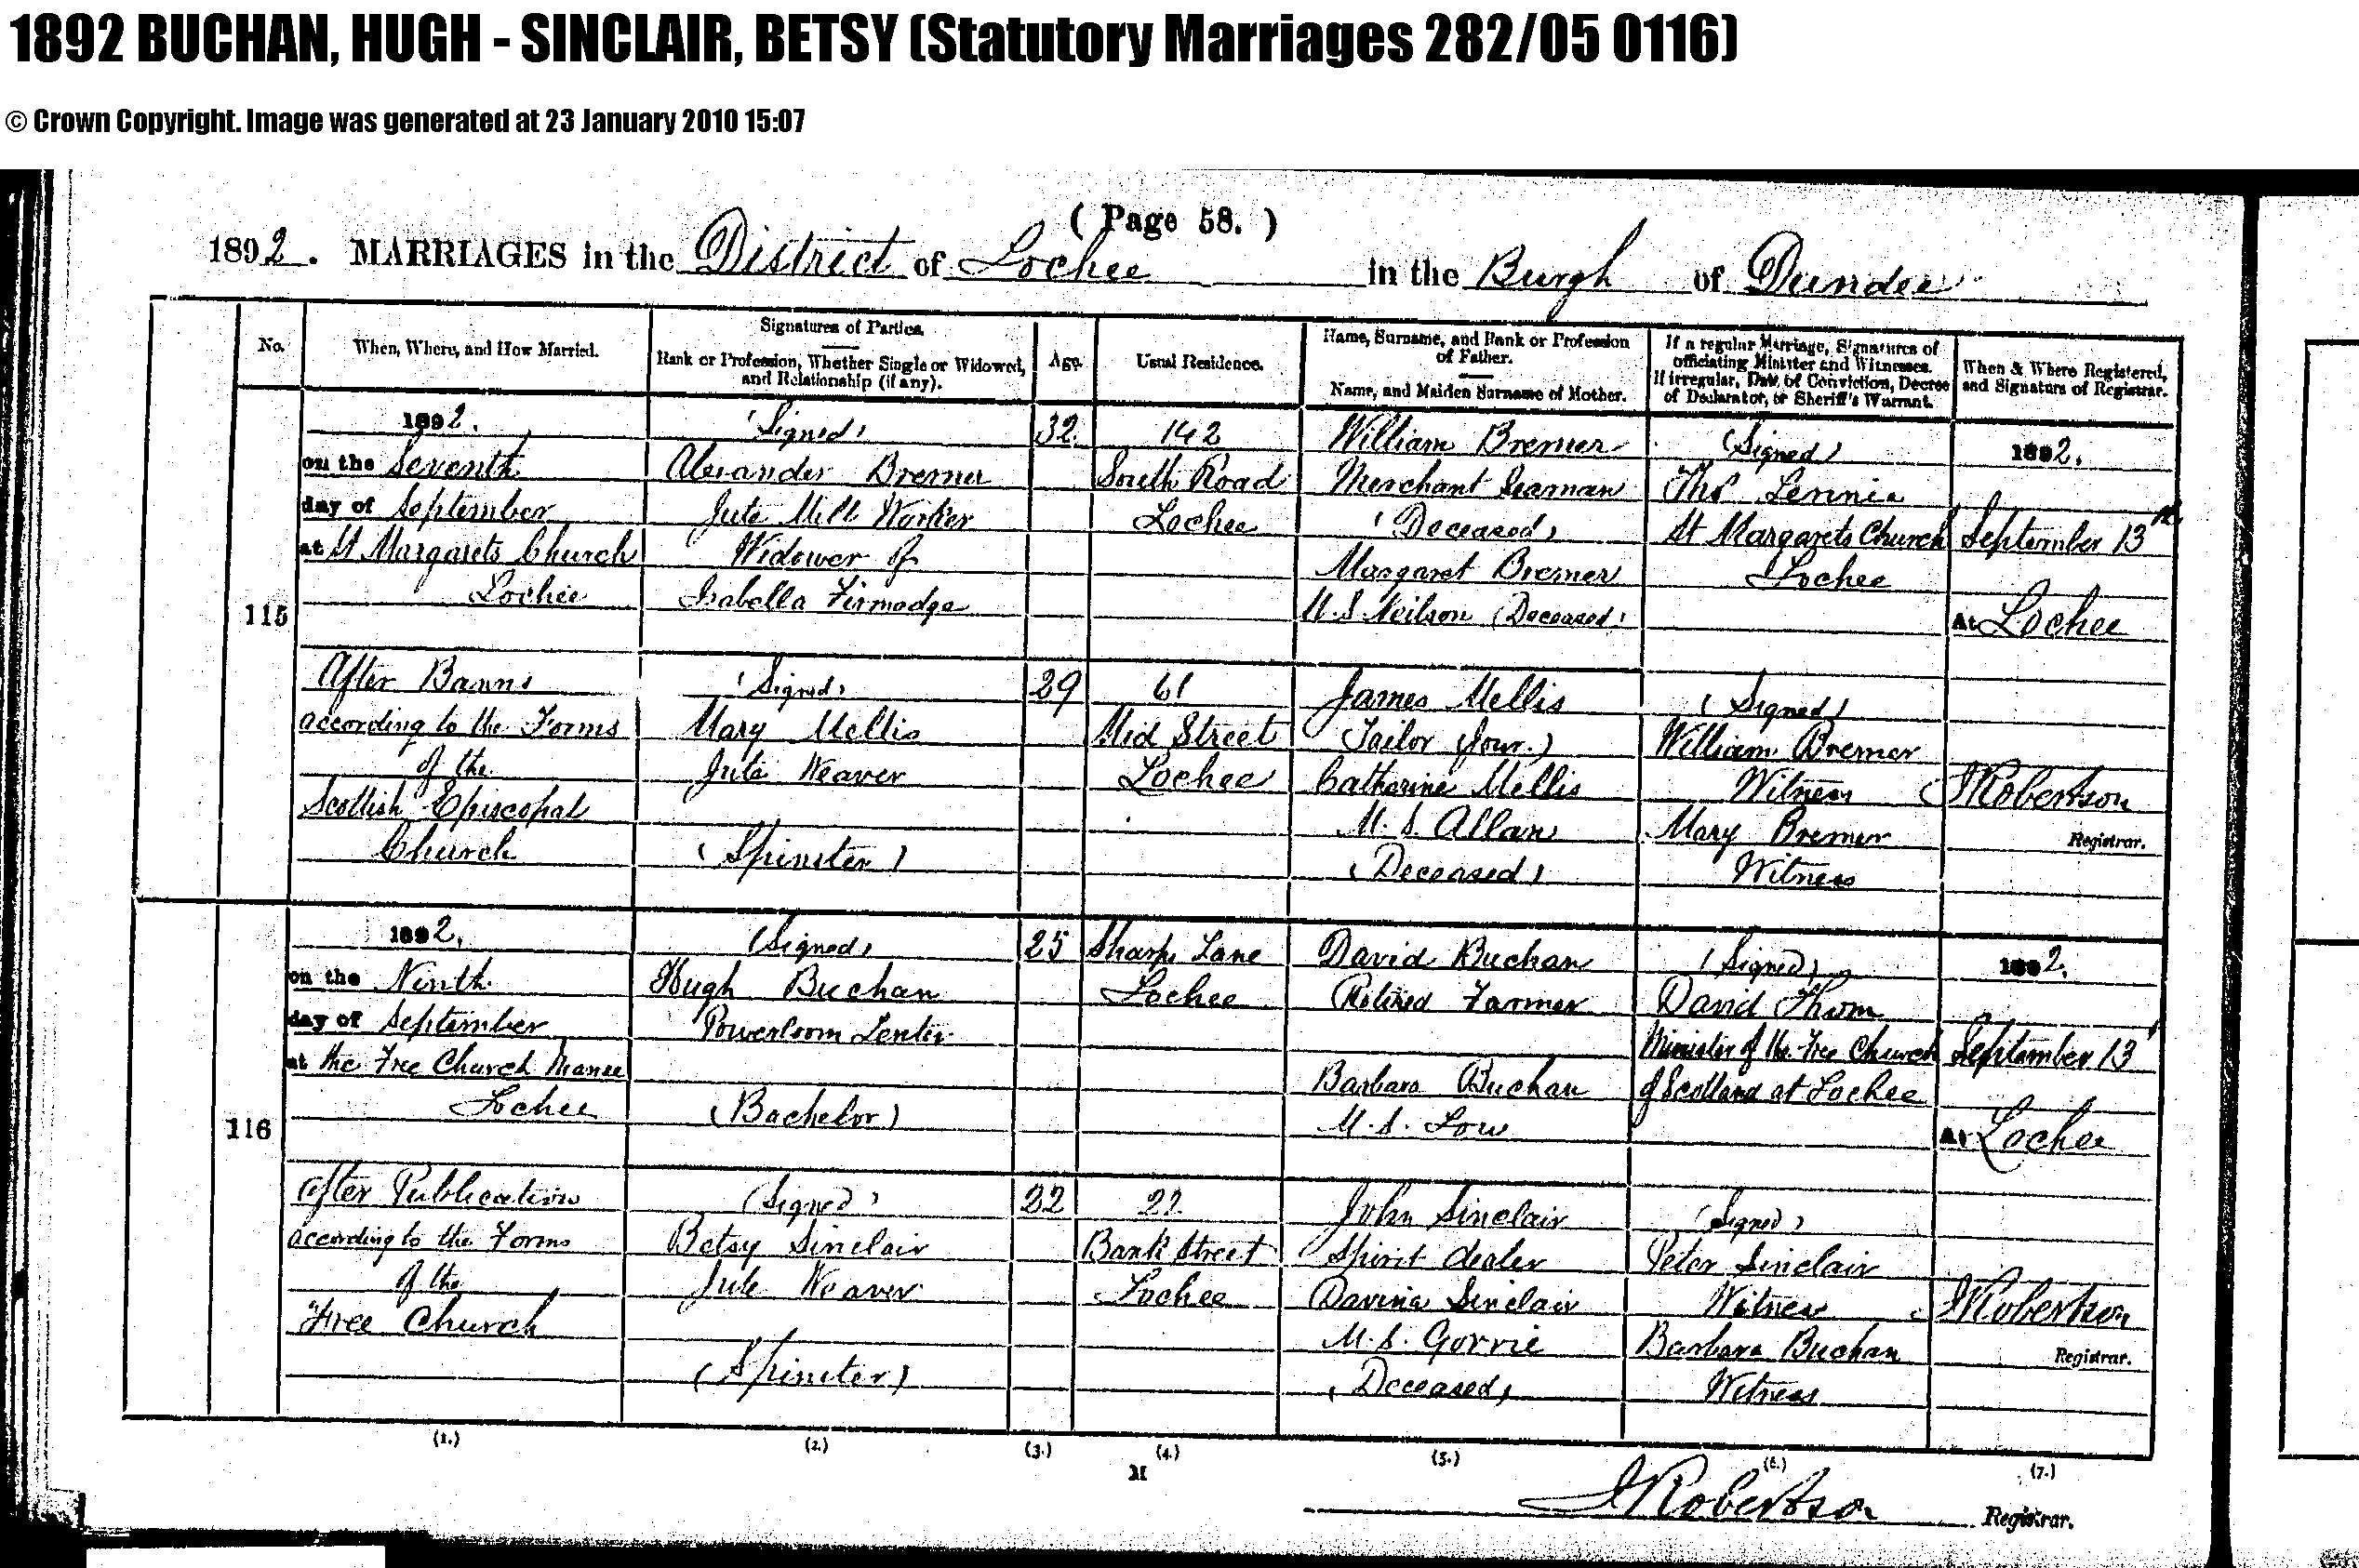 1892 BUCHAN, HUGH - SINCLAIR, BETSY (Statutory Marriages 282/05 0116)
© Crown Copyright. Image was generated at 23 January 2010 15:07
( Page 58. )
1892. MARRIAGES in the District of Lochee in the Burgh of Dundee
No.
When, Where, and How Married.
Signatures of Parties.
Rank or Profession, Whether Single or Widowed, and Relationship (if any).
Age.
Usual Residence.
Name, Surname, and Rank or Profession of Father.
Name, and Maiden Surname of Mother.
If a regular Marriage, Signatures of officiating Minister and Witnesses.
If irregular, Date of Conviction, Decree of Declarator, or Sheriff's Warrant.
When & Where Registered, and Signature of Registrar.
115
1892.
on the Seventh
day of September
at St Margarets Church
Lochee
After Banns
according to the Forms
of the
Scottish Episcopal
Church
(Signed)
Alexander Bremer
Jute Mill Worker
Widower of
Isabella Firmadge
(Signed)
Mary Mellis
Jute Weaver
(Spinster)
32.
29
142
South Road
Lochee
61
Mid Street
Lochee
William Bremer
Merchant Seaman
(Deceased)
Margaret Bremer
M.S. Neilson (Deceased)
James Mellis
Tailor (Jour.)
Catharine Mellis
M.S. Allan
(Deceased)
(Signed)
Thos
St Margarets Church
Lochee
(Signed)
William Bremer
Witness
Mary Bremer
Witness
1892.
September 13th
At Lochee
J Robertson
Registrar.
116
1892.
on the Ninth
day of September
at the Free Church Manse
Lochee
After Publication
according to the Forms
of the
Free Church
(Signed)
Hugh Buchan
Powerloom Tenter
(Bachelor)
(Signed)
Betsy Sinclair
Jute Weaver
(Spinster)
25
22
Sharps Lane
Lochee
22
Bank Street
Lochee
David Buchan
Retired Farmer
Barbara Buchan
M.S. Low
John Sinclair
Spirit dealer
Davina Sinclair
M.S. Gorrie
(Deceased)
(Signed)
David Thom
Minister of the Free Church
of Scotland at Lochee
(Signed)
Peter Sinclair
Witness
Barbara Buchan
Witness
1892.
September 13
At Lochee
J Robertson
Registrar.
(1.) (2.) (3.) (4.) (5.) (6.) (7.)
M
J Robertson Registrar.